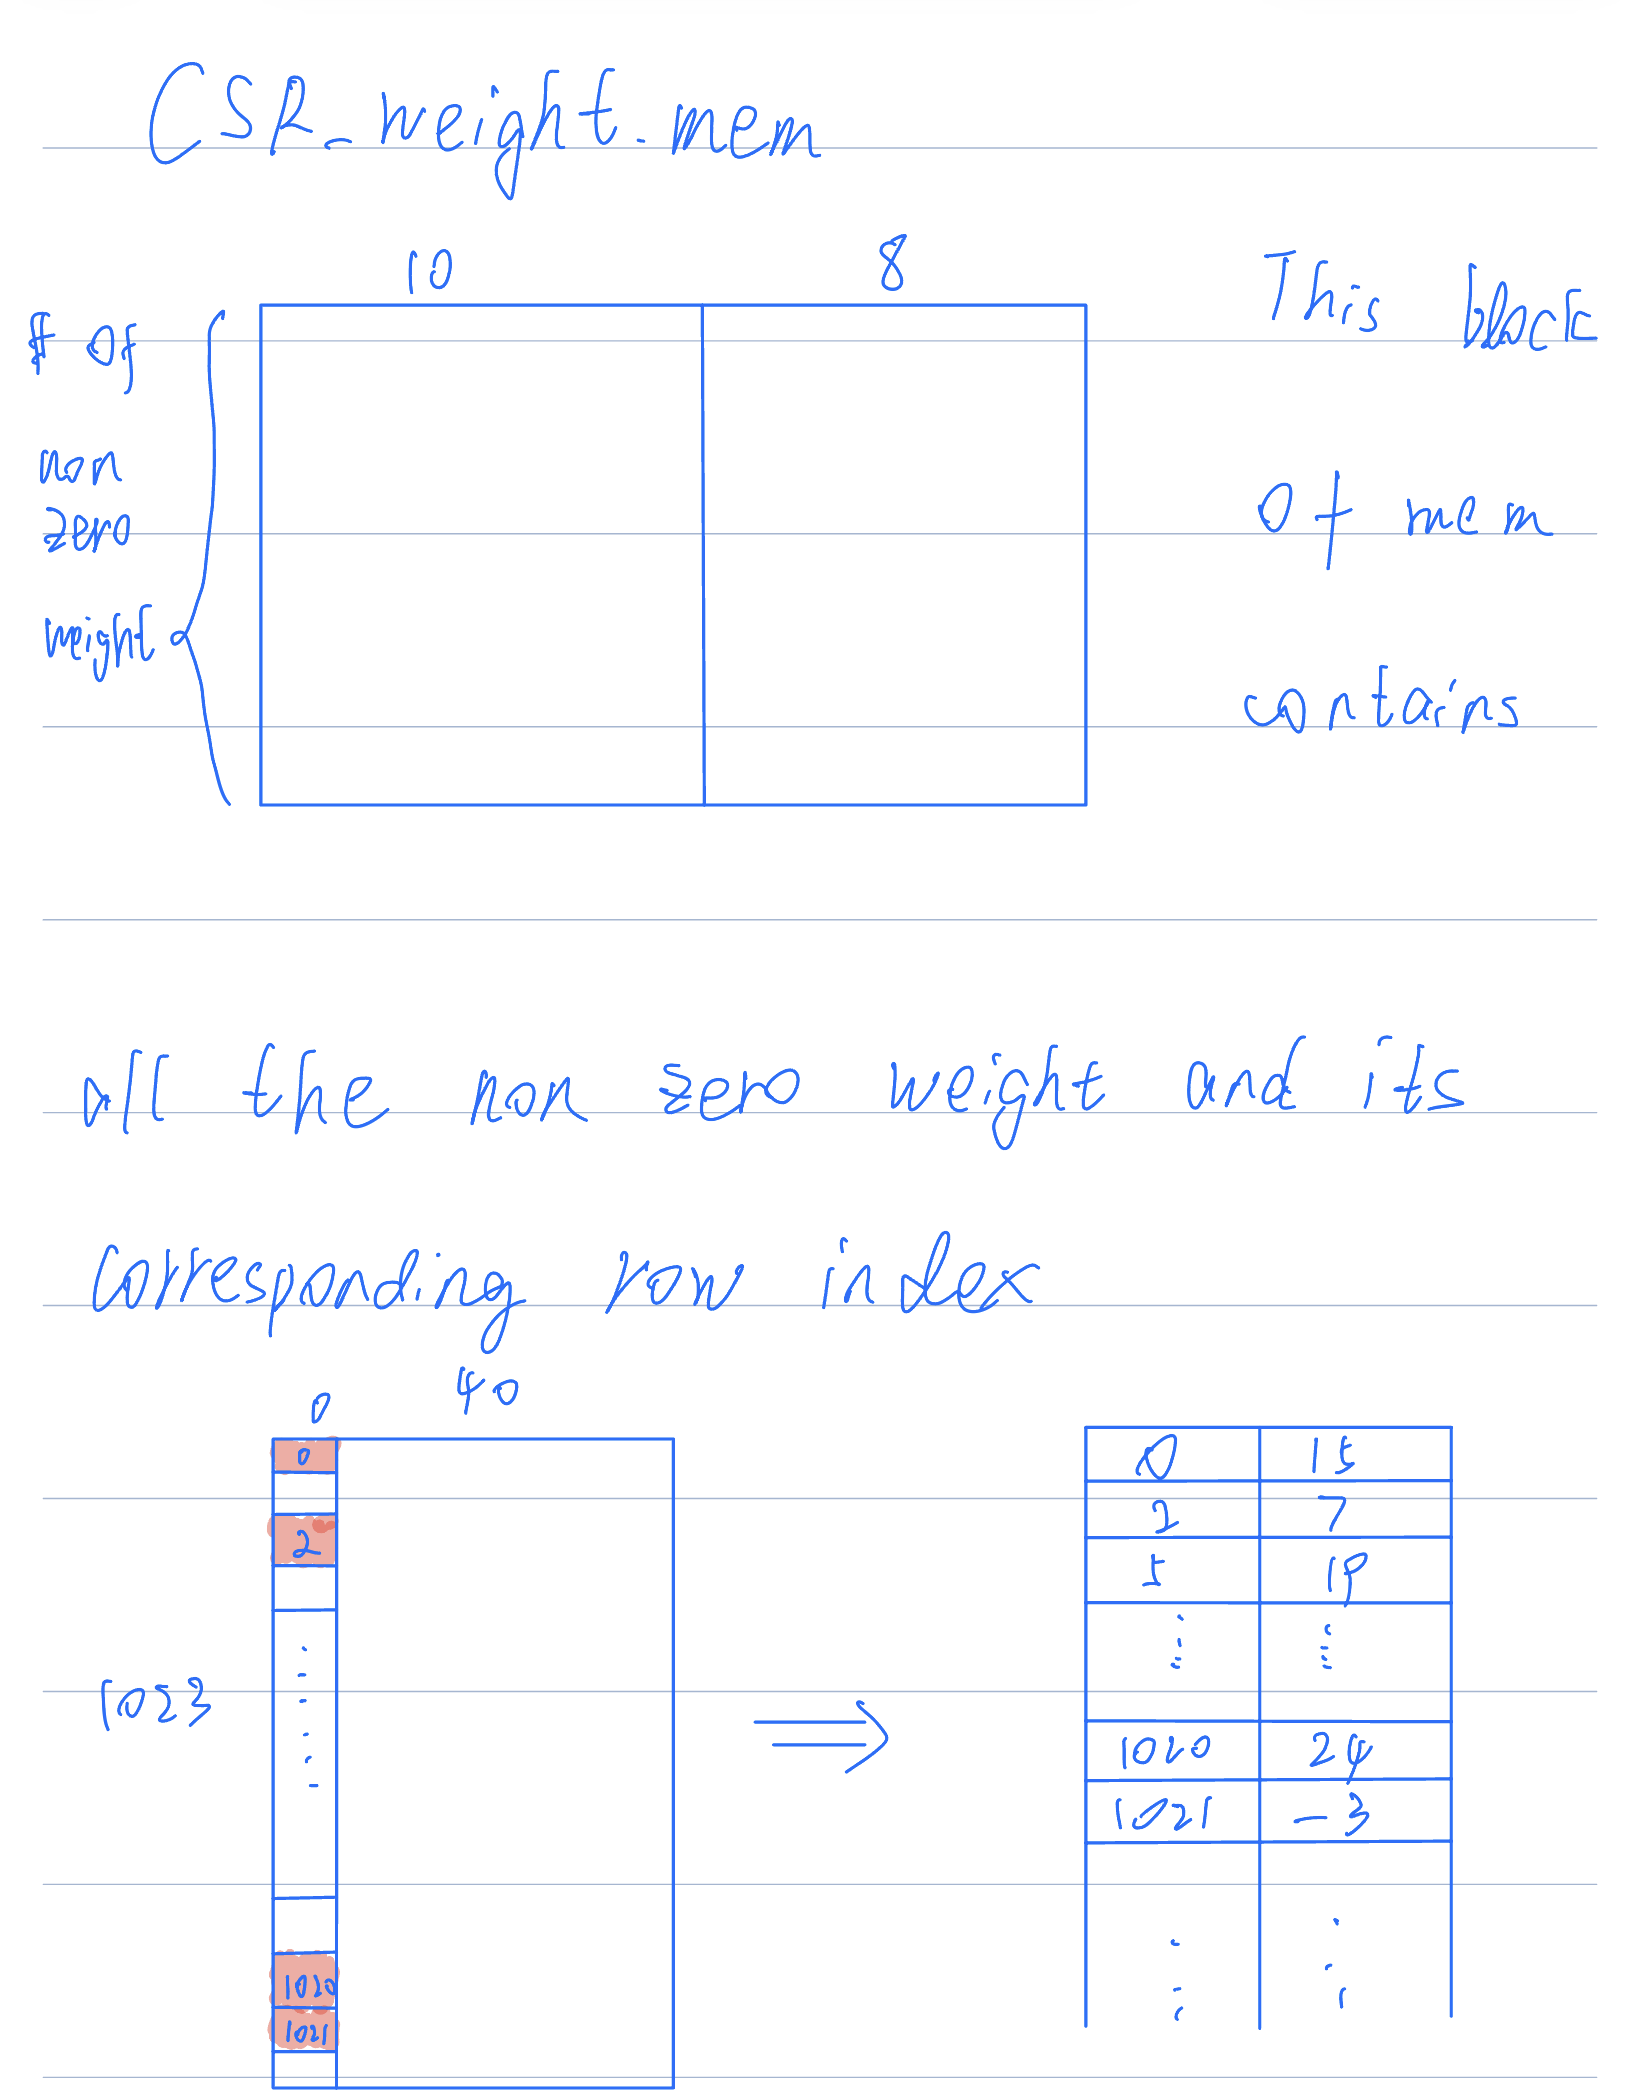 CSR_weight_mem
10 8
# of
non
zero
weight
This block
of mem
contains
all the non zero weight and its
corresponding row index
0 40
0
2
1023
1020
1021
0 15
2 7
5 19
1020 24
1021 -3